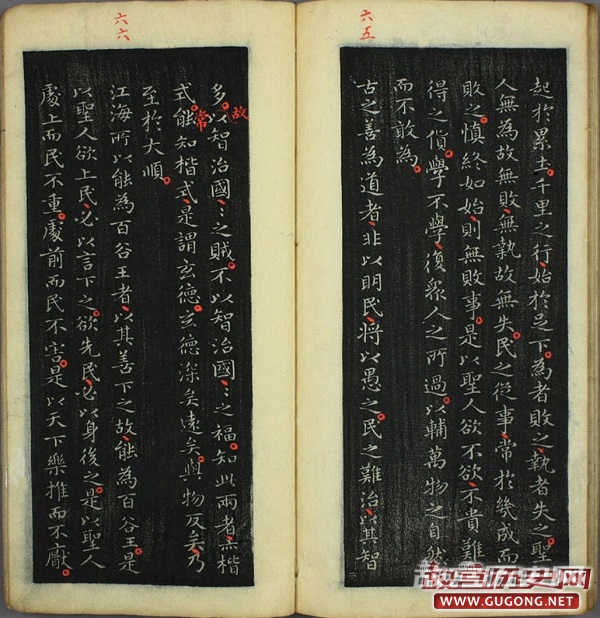 六五
起於累土千里之行始於足下為者敗之執者失之聖
人無為故無敗無執故無失民之從事常於幾成而
敗之慎終如始則無敗事是以聖人欲不欲不貴難
得之貨學不學復眾人之所過以輔萬物之自然
而不敢為
古之善為道者非以明民將以愚之民之難治以其智
六六
多以智治國㆓之賊不以智治國㆓之福知此兩者亦楷
故
式能知楷式是謂玄德玄德深矣遠矣與物反矣乃
常
至於大順
江海所以能為百谷王者以其善下之故能為百谷王是
以聖人欲上民必以言下之欲先民必以身後之是以聖人
處上而民不重處前而民不害是以天下樂推而不厭
故宫历史网
WWW.GUGONG.NET